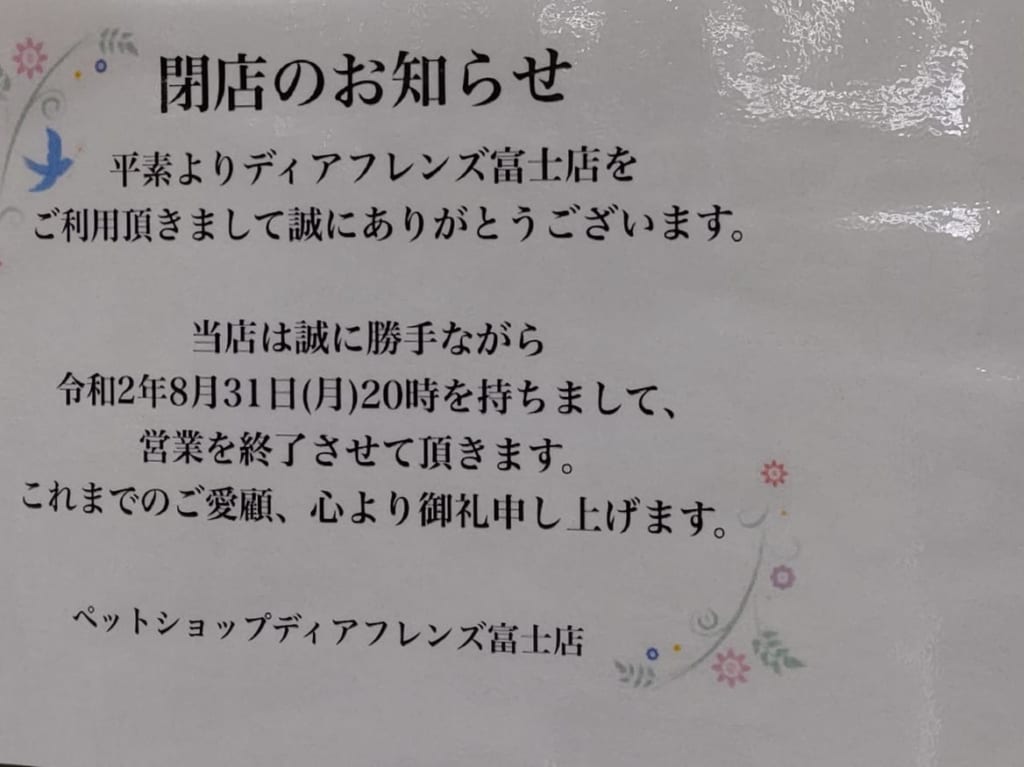 閉店のお知らせ
平素よりディアフレンズ富士店を
ご利用頂きまして誠にありがとうございます。
当店は誠に勝手ながら
令和2年8月31日(月)20時を持ちまして、
営業を終了させて頂きます。
これまでのご愛顧、心より御礼申し上げます。
ペットショップディアフレンズ富士店